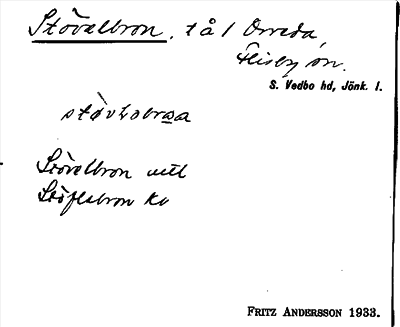 Stövelbron, t å / Orreda,
Flisby sn.
S. Vedbo hd, Jönk. l.
Stövelbron uttl
Stöflebron kv
FRITZ ANDERSSON 1933.